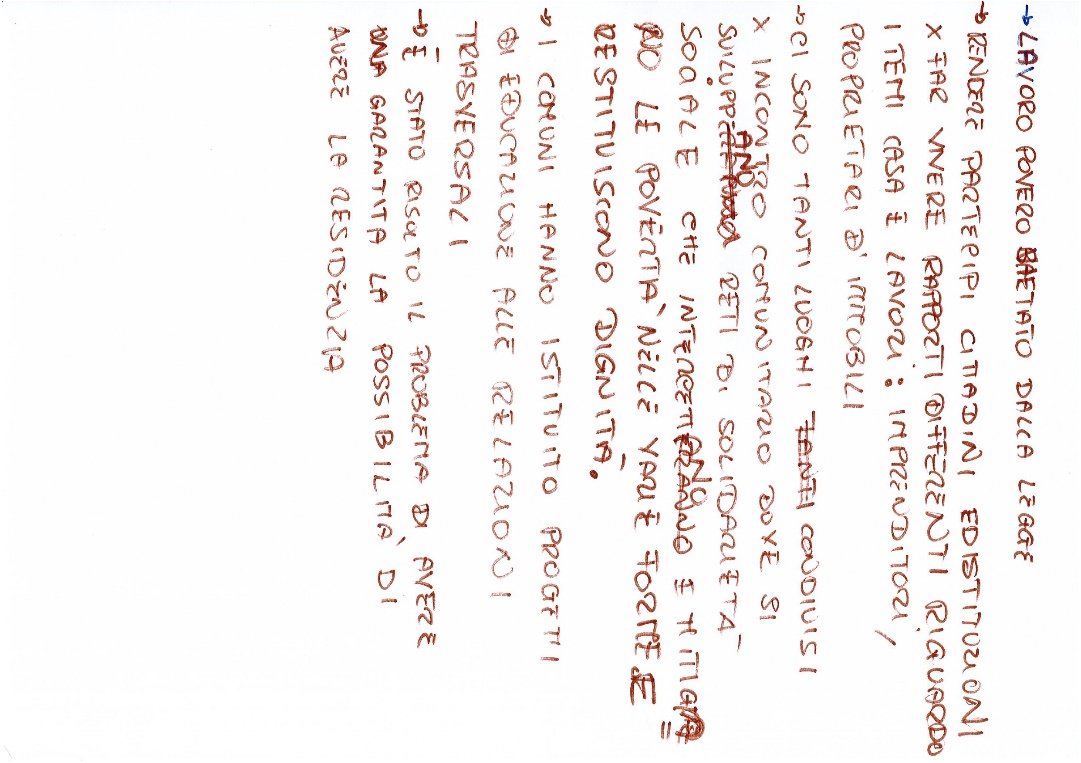 → LAVORO POVERO VIETATO DALLA LEGGE
→ RENDERE PARTECIPI CITTADINI ED ISTITUZIONI
X FAR VIVERE RAPPORTI DIFFERENTI RIGUARDO
I TEMI CASA E LAVORI: IMPRENDITORI,
PROPRIETARI D'IMMOBILI
→ CI SONO TANTI LUOGHI CONDIVISI
X INCONTRO COMUNITARIO DOVE SI
SVILUPPANO RETI DI SOLIDARIETÀ
SOCIALE CHE INTERCETTANO E MITIGA=
NO LE POVERTÀ NELLE VARIE FORME E
RESTITUISCONO DIGNITÀ.
→ I COMUNI HANNO ISTITUITO PROGETTI
DI EDUCAZIONE ALLE RELAZIONI
TRASVERSALI
→ È STATO RISOLTO IL PROBLEMA DI AVERE
UNA GARANTITA LA POSSIBILITÀ DI
AVERE LA RESIDENZIA